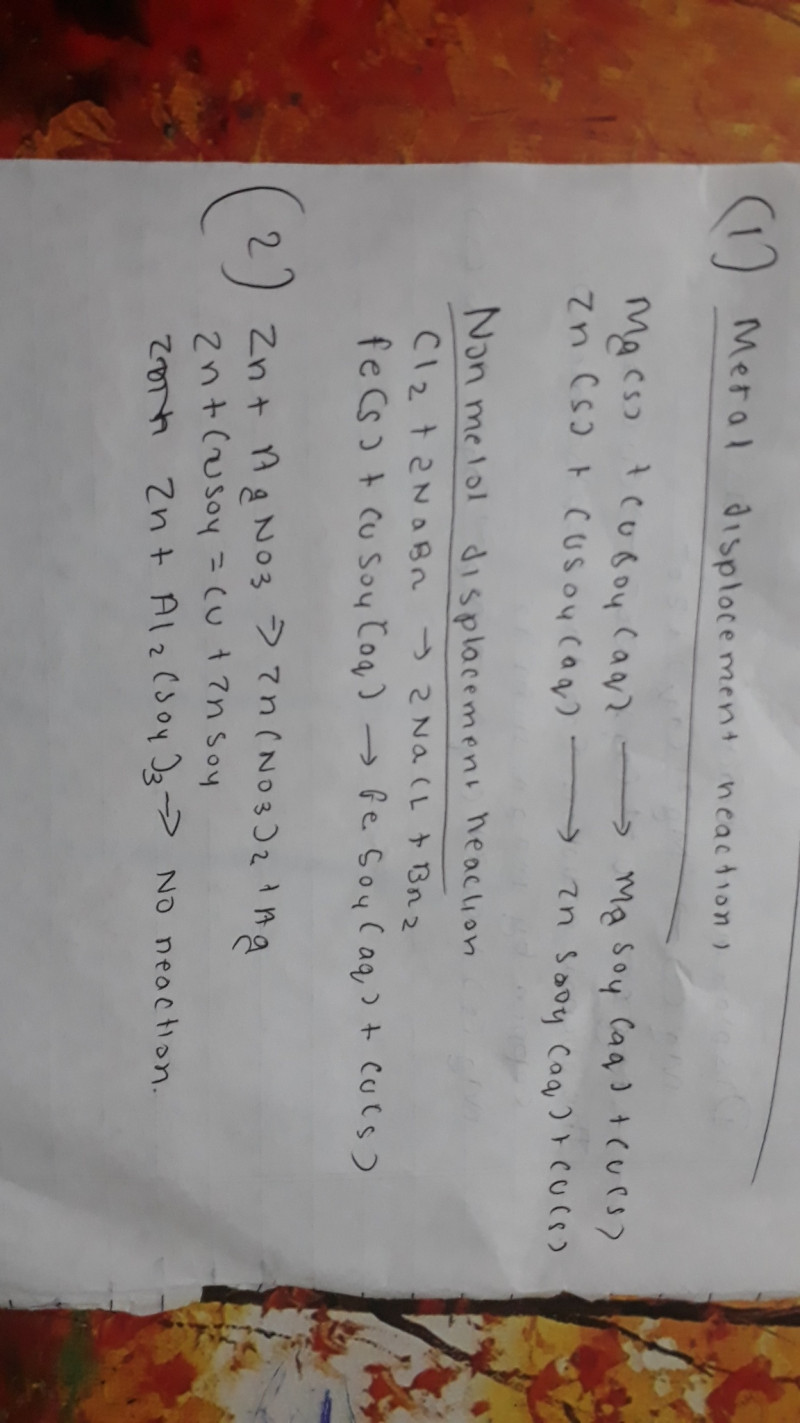 (1) Metal displacement reaction,
Mg(s) + CuSO4(aq) → MgSO4(aq) + Cu(s)
Zn(s) + CuSO4(aq) → ZnSO4(aq) + Cu(s)
Non metal displacement reaction
Cl2 + 2NaBr → 2NaCl + Br2
Fe(s) + CuSO4(aq) → FeSO4(aq) + Cu(s)
(2) Zn + AgNO3 ⇒ Zn(NO3)2 + Ag
Zn + CuSO4 = Cu + ZnSO4
Zn + Al2(SO4)3 ⇒ No reaction.